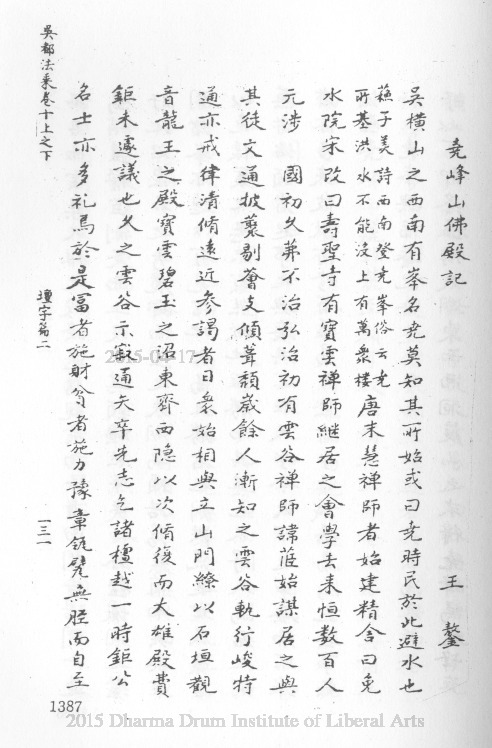 堯峰山佛殿記
王鏊
吳橫山之西南有峯名堯莫知其所始或曰堯時民於此避水也
蘓子美詩西南登堯峯俗云堯
所基洪水不能沒上有萬衆棲
唐末慧禪師者始建精舍曰免
水院宋改曰壽聖寺有寶雲禪師繼居之會學去来恒數百人
元涉 國初久茀不治弘治初有雲谷禪師諱蒞始謀居之與
其徒文通披蘩剔薈支傾葺頽歲餘人漸知之雲谷軌行峻特
通亦戒律清脩遠近參謁者日衆始相與立山門繚以石垣觀
音龍王之殿寶雲碧玉之沼東齊西隐以次脩復而大雄殿費
鉅未遽議也久之雲谷示寂通矢卒先志乞諸檀越一時鉅公
名士亦多礼焉於是冨者施財貧者施力豫章瓴甓無脛而自至
吳都法乘卷十上之下
壇字篇二
一三一
1387
2015-04-17
2015 Dharma Drum Institute of Liberal Arts